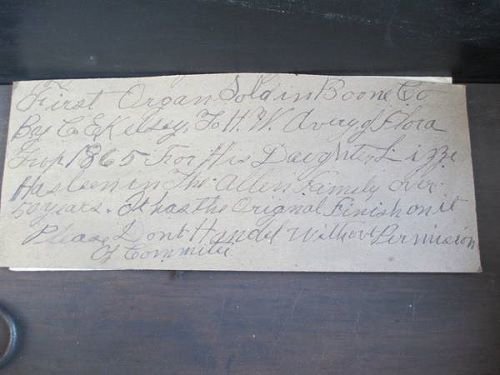 First Organ Sold in Boone Co
By C E Kelsey, To H. W. Avery of Flora
Twp 1865 For His Daughter Lizzie
Has been in The Allen Family over
50 years. It has the Orignal Finish on it
Please Dont Handel Without Permision
Of Committe